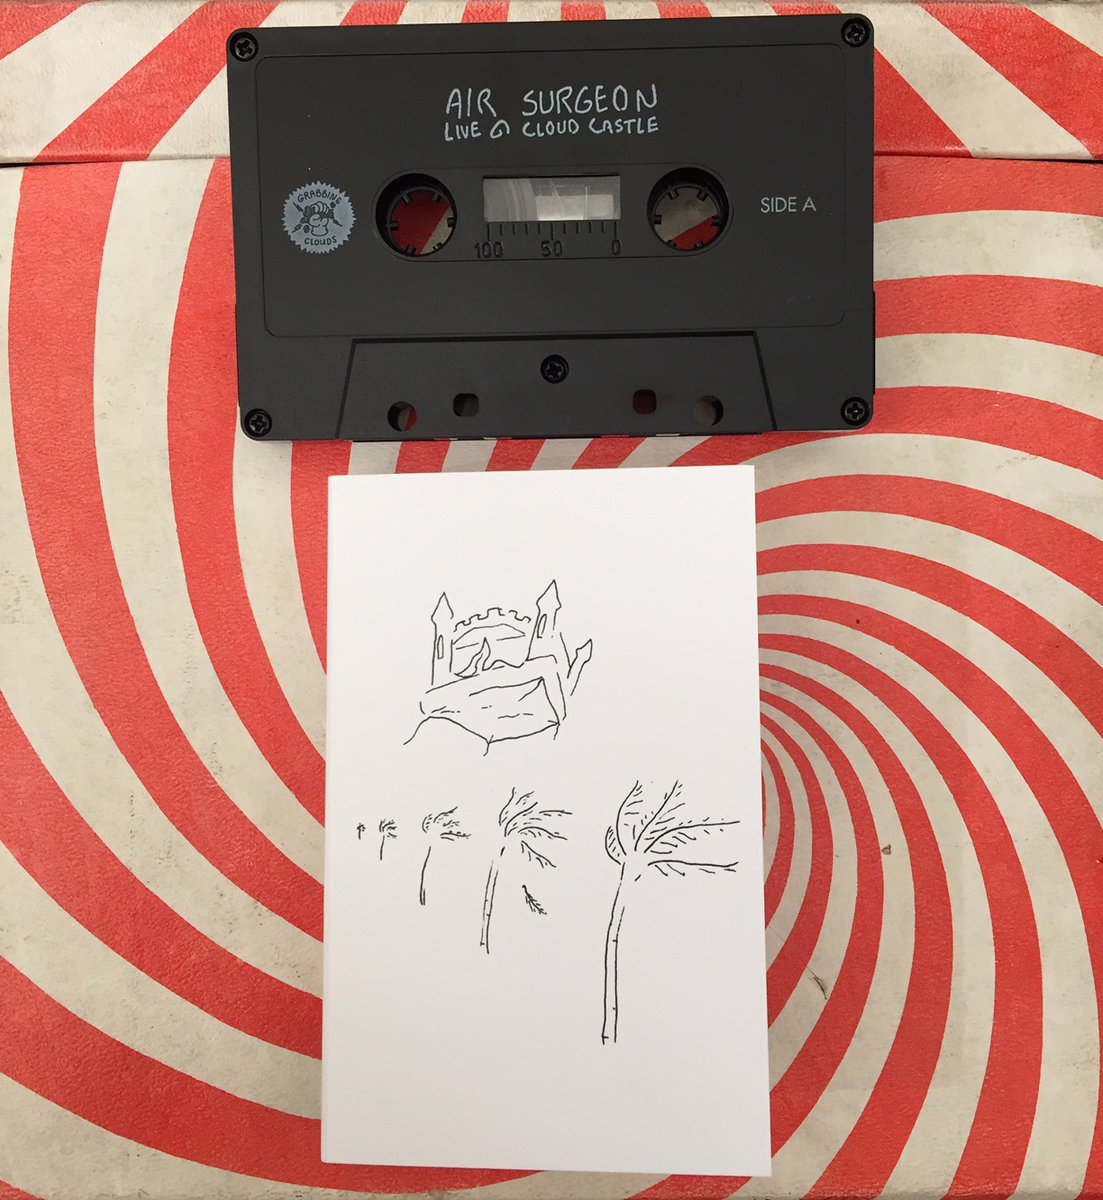 AIR SURGEON
LIVE @ CLOUD CASTLE
GRABBING
CLOUDS
SIDE A
100 50 0